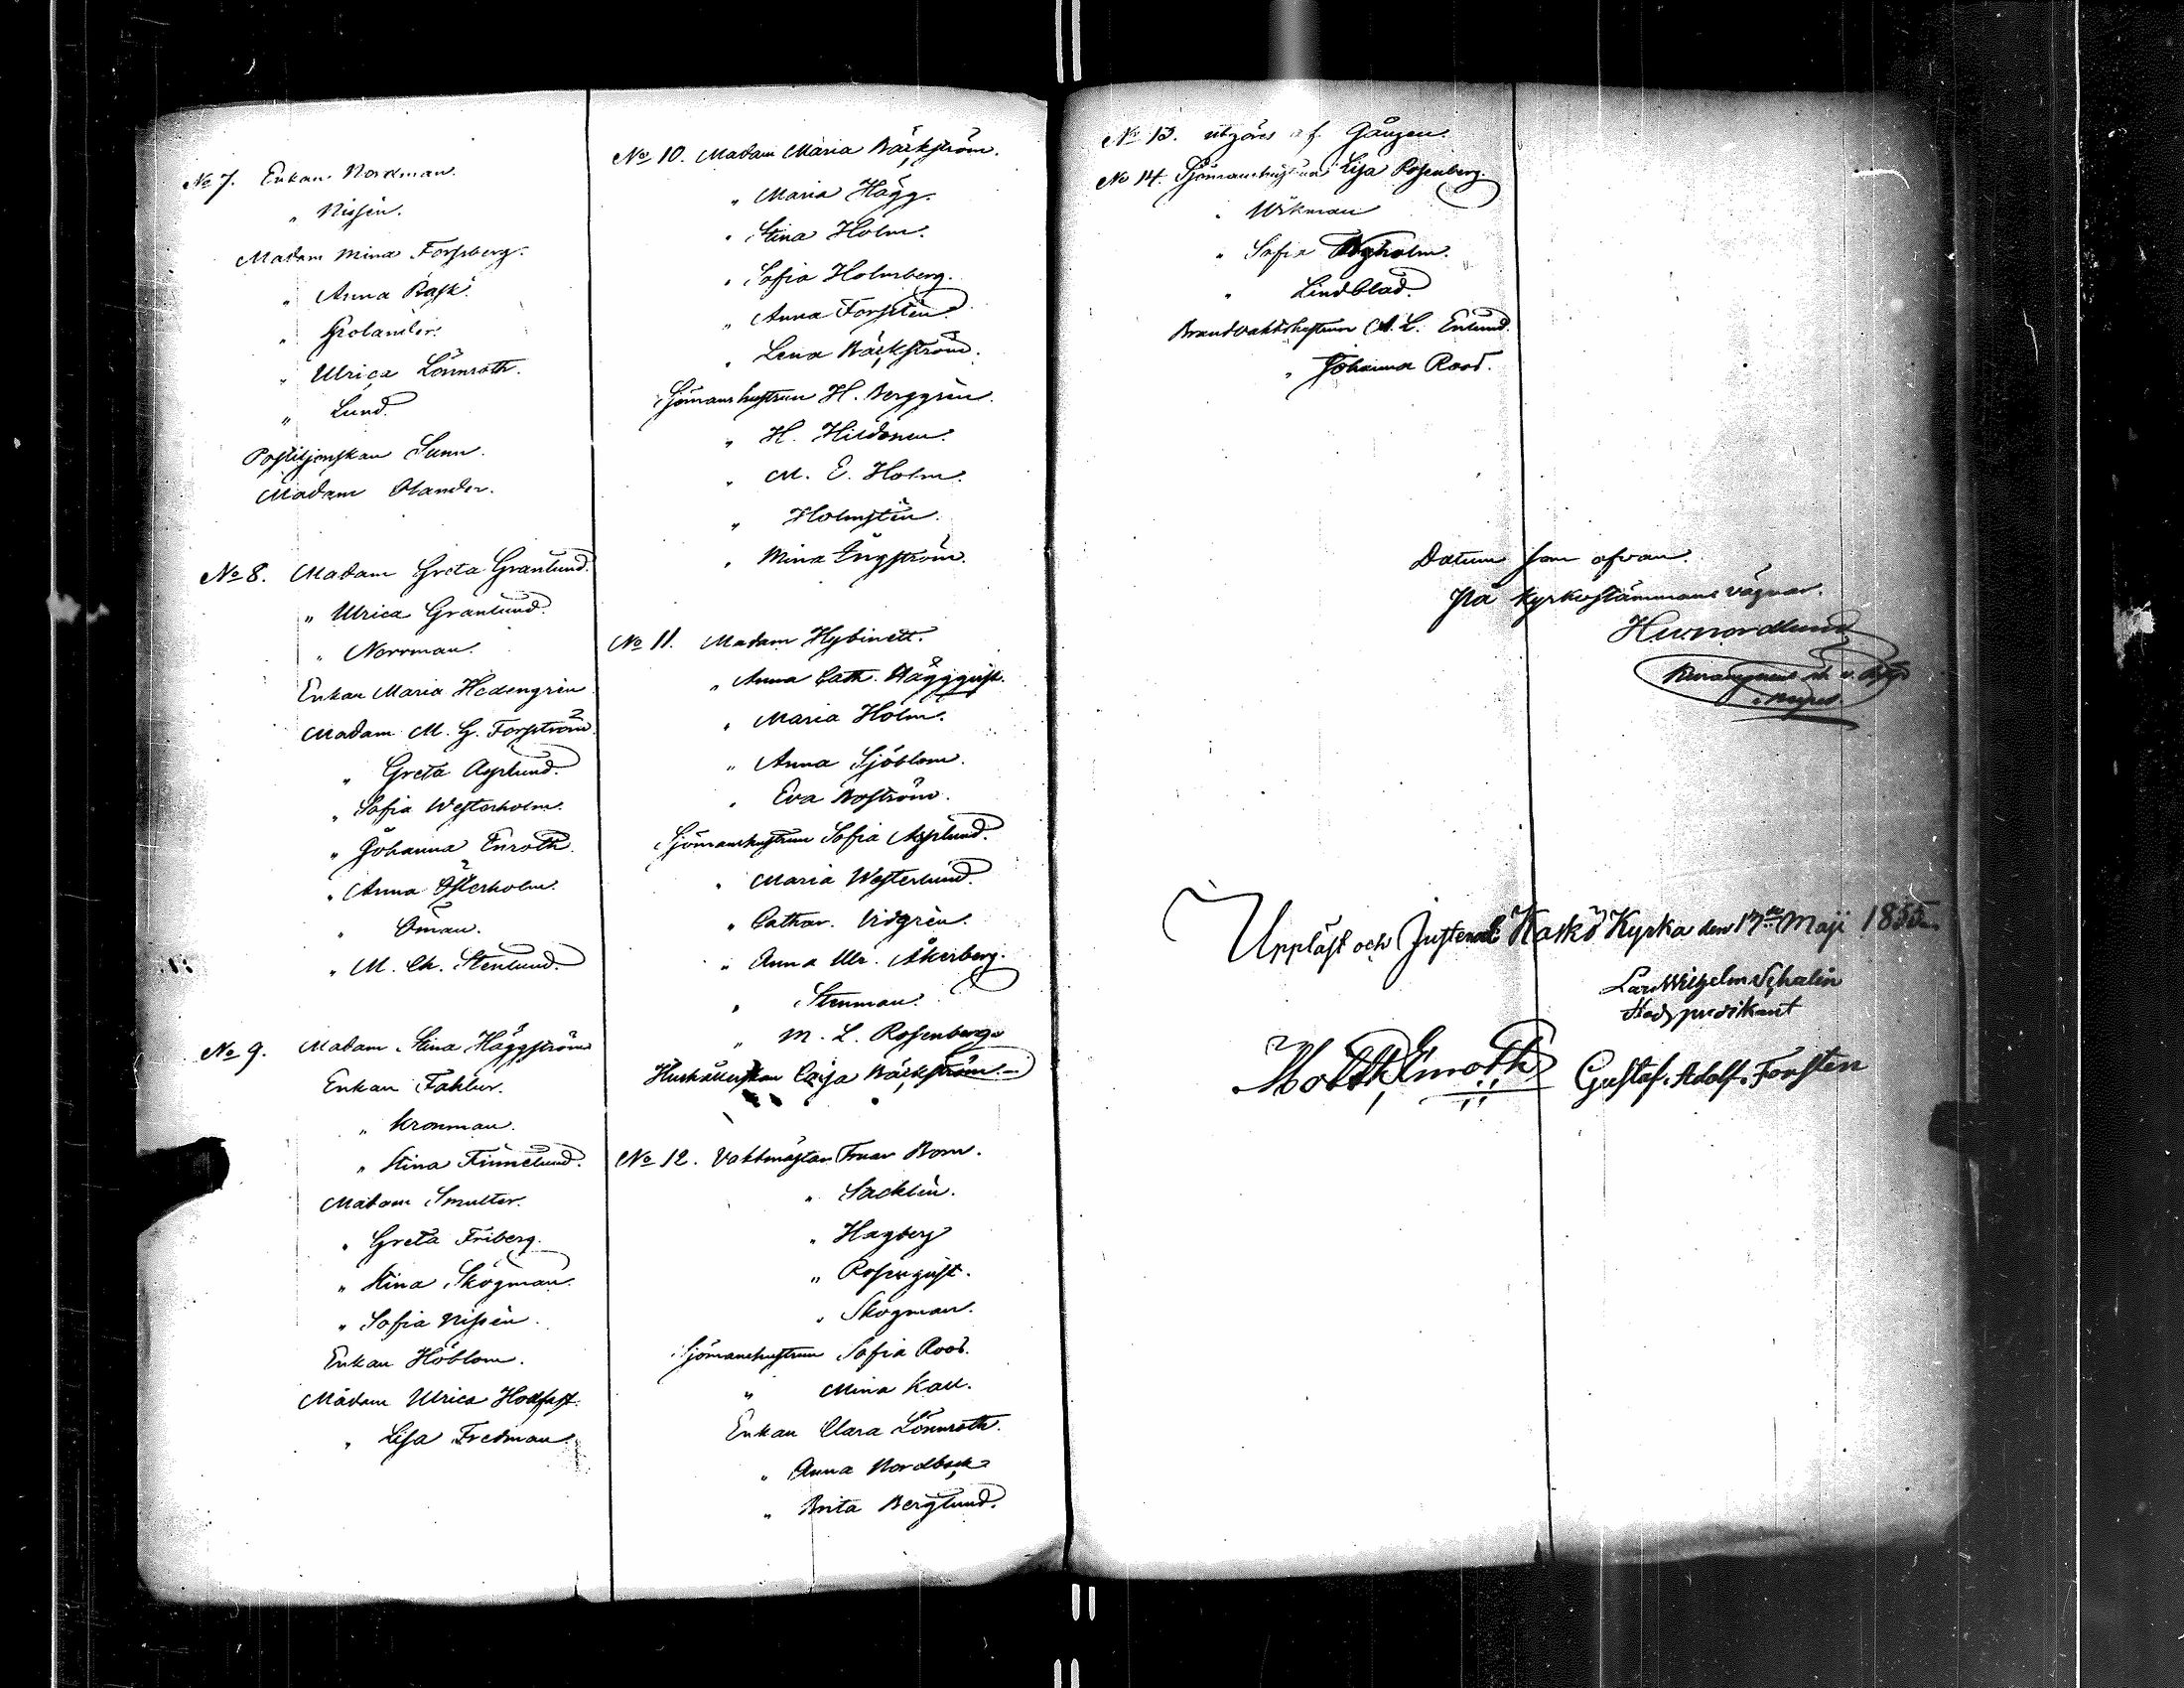 No 7. Enkan Norrman.
" Nissén.
Madam Mina Forssberg.
" Anna Bask.
" Grolander.
" Ulrica Lönnroth.
" Lund.
Postiljonskan Sunn.
Madam Olander.
No 8. Madam Greta Granlund.
" Ulrica Granlund.
" Norrman.
Enkan Maria Hedengrén
Madam M. G. Forsström
" Greta Asplund.
" Sofia Westerholm.
" Johanna Enroth.
" Anna Österholm.
" Öman.
" M. Ch. Stenlund.
No 9. Madam Stina Häggström
Enkan Fahler.
" Kronman.
" Stina Finnelund.
Madam Smulter.
" Greta Friberg.
" Stina Skogman.
" Sofia Nissén.
Enkan Höblom.
Madam Ulrica Hodfast.
" Lisa Fredman.
No 10. Madam Maria Bäckström.
" Maria Hägg.
" Stina Holm.
" Sofia Holmberg.
" Anna Forstén.
" Lena Bäckström.
Sjömanshustrun H. Berggrén.
" H. Hildonen.
" M. E. Holm.
" Holmstén.
" Mina Engström.
No 11. Madam Hybinett.
" Anna Cath. Häggquist.
" Maria Holm.
" Anna Sjöblom.
" Eva Boström.
Sjömanshustrun Sofia Asplund.
" Maria Westerlund.
" Cathar. Vidgrén.
" Anna Ulr. Åkerberg.
" Stenman.
" M. L. Rosenberg.
Hushållerskan Caisa Bäckström.
No 12. Vaktmästar Fruar Born.
" Sacklén.
" Hagberg
" Rosenquist.
" Skogman.
Sjömanshustrun Sofia Roos.
" Mina Kall.
Enkan Clara Lönnroth.
" Anna Nordback
" Brita Berglund.
No 13. utgöres af Gången.
No 14. Sjömanshustrun Lisa Rosenberg.
" Wikman
" Sofia Bgholm.
" Lindblad.
Brandvaktshustrun A. L. Enlund.
" Johanna Roos.
Datum som ofvan.
På Kyrkostämmans vägnar.
H W Nordlund
Uppläst och Justerat Kaskö Kyrka den 17de Maji 1855.
Lars Wilhelm Schalin
Stadspredikant
Matth. Enroth Gustaf Adolf Forstén